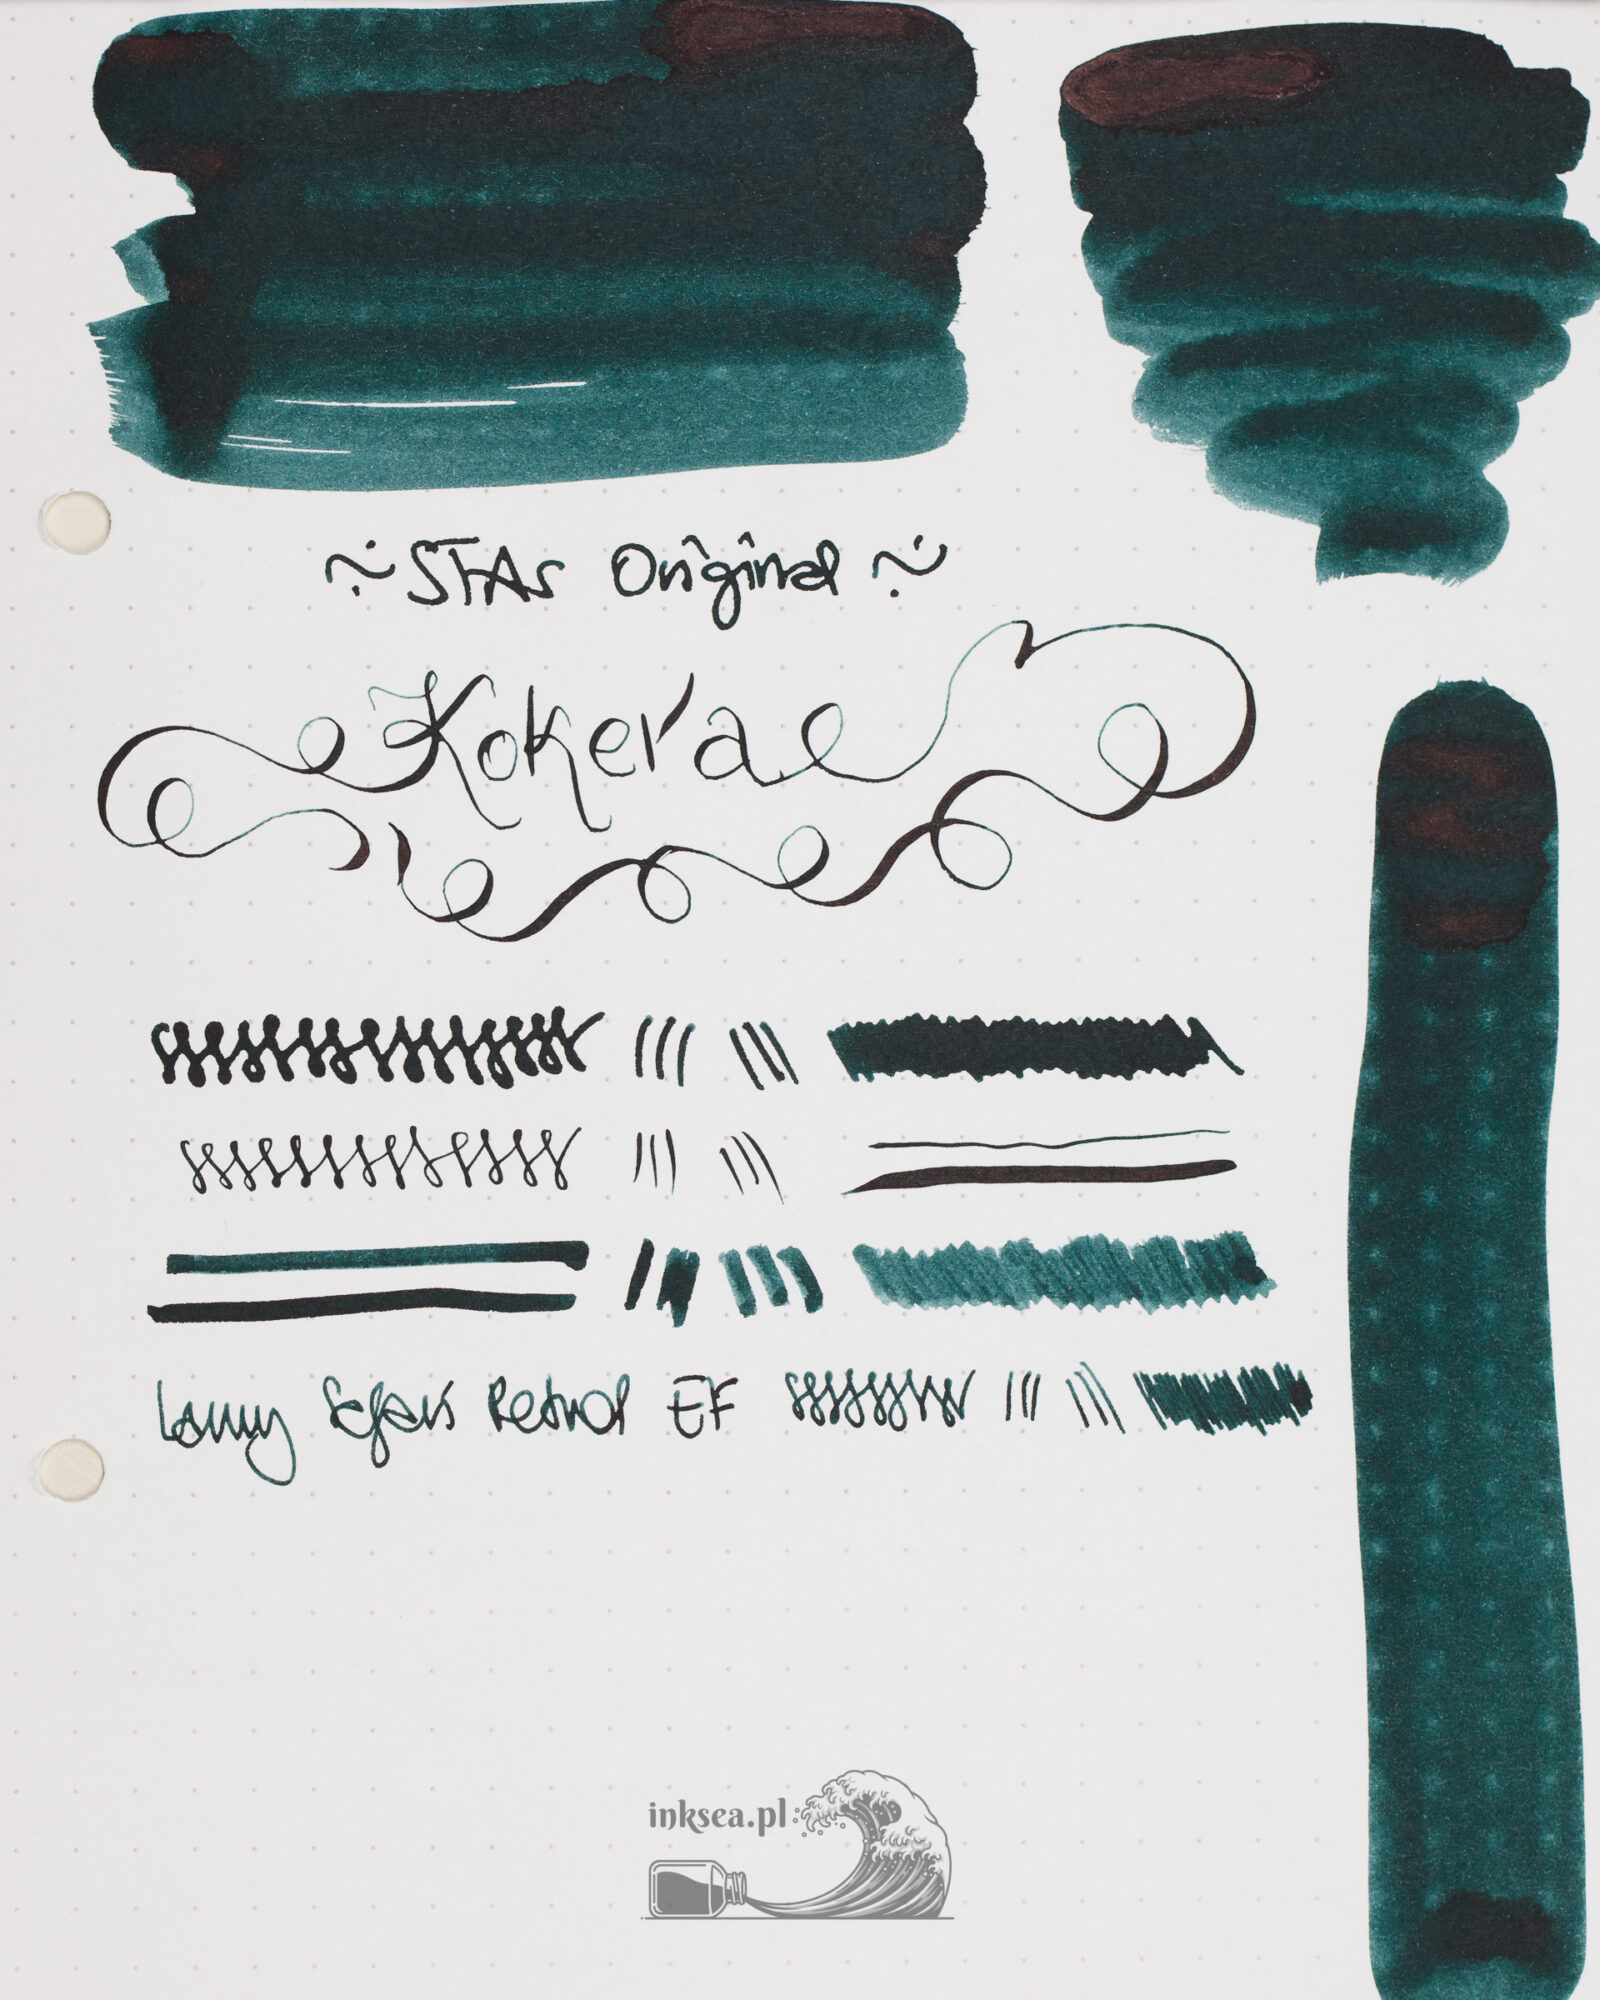 ~ STAs Original ~
Kokera
Lamy Safari Retro EF
inksea.pl